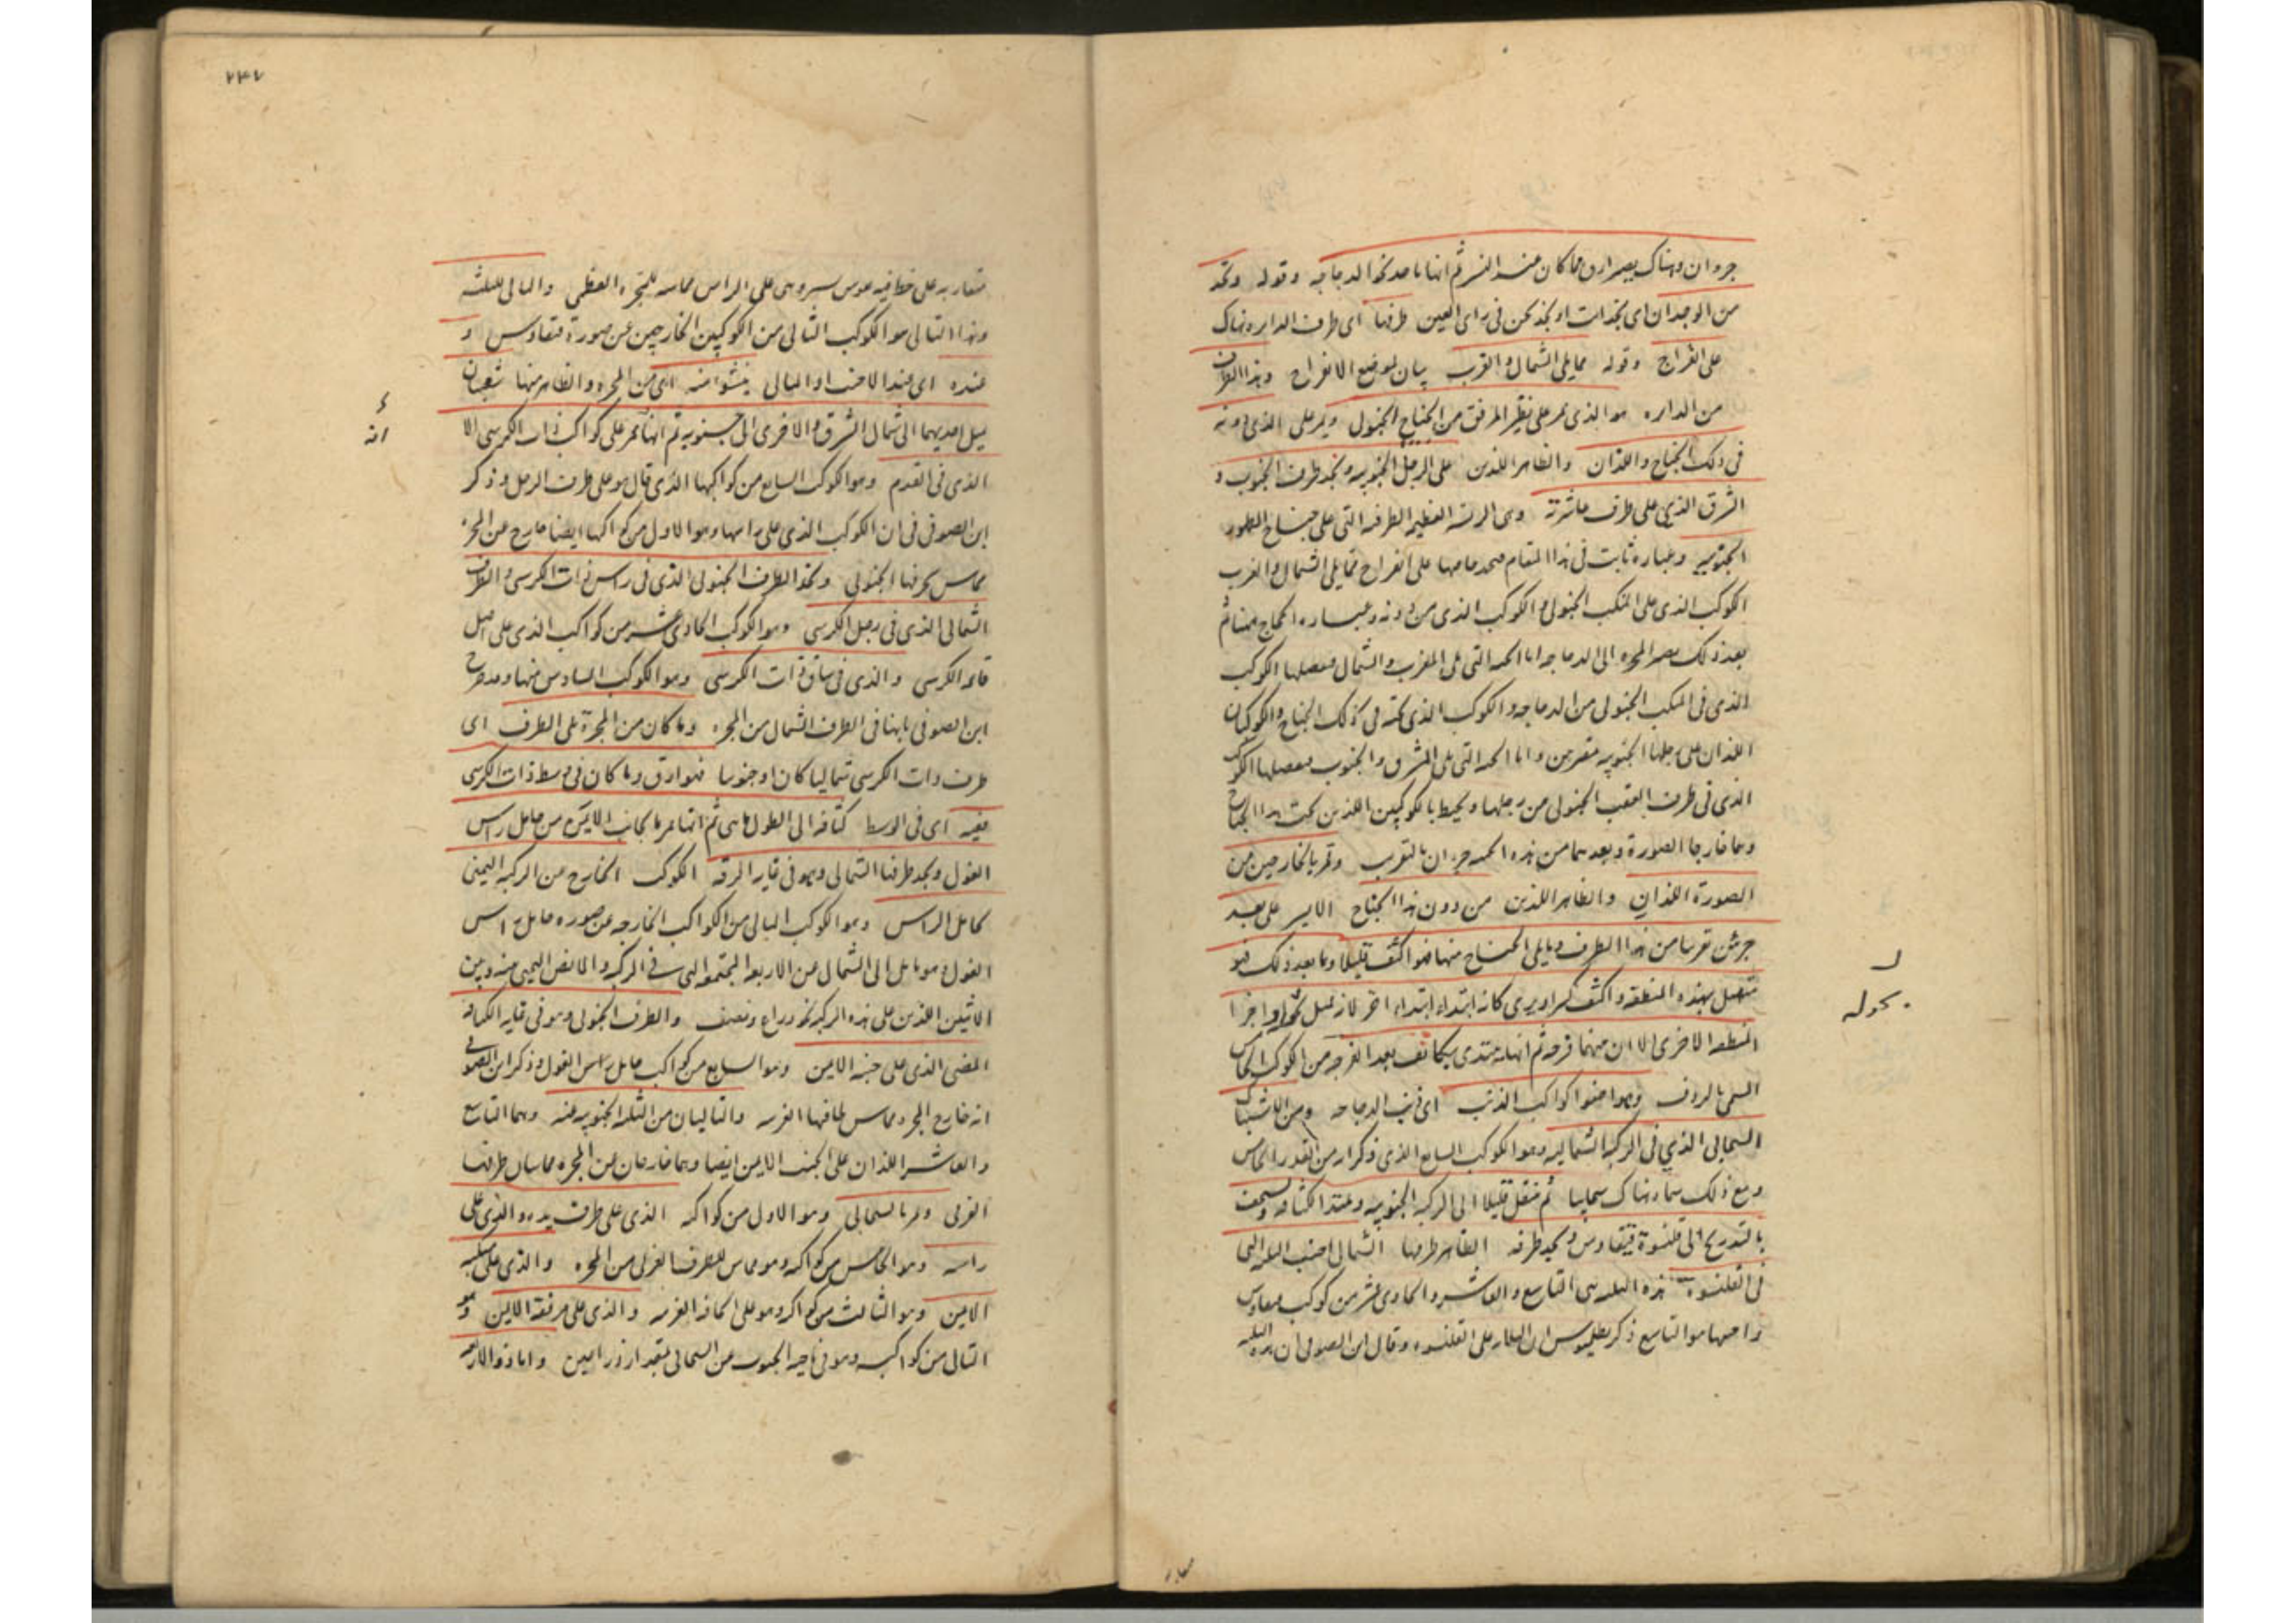 جزءان وهناك يصير ارق مما كان عند النسر ثم انها تاخذ نحو الدجاجه وقوله وتجد
من الوجدان اى تجد انت او تجد نحن فى راى العين طرفها اى طرف الدايره هناك
على انفراج وقوله مما يلى الشمال والغرب بيان لموضع الانفراج وهذا الطرف
من الدايره هو الذى يمر على نظير المرفق من الجناح الجنوبى ويمر على الذى دونه
فى ذلك الجناح واللذان والظاهر اللذين على الرجل الجنوبيه وتجد طرف الجنوب و
الشرق الذى على طرف عاشرته وهى الريشه العظيمه الطرفيه التى على جناح الطيور
الجنوبيه وعباره ثابت فى هذا المقام على انفراج مما يلى الشمال والغرب
الكوكب الذى على المنكب الجنوبى والكوكب الذى من دونه وعباره الحجاج
بعد ذلك المجره الى الدجاجه اما الجهه التى تلى المغرب والشمال الكوكب
الذى فى المنكب الجنوبى من الدجاجه والكوكب الذى تحته فى ذلك الجناح والكوكبان
اللذان على رجلها الجنوبيه واما الجهه التى تلى المشرق والجنوب الكوكب
الذى فى طرف العقب الجنوبى من رجلها ويحيط بالكوكبين اللذين تحت هذا الجناح
وهما خارجا الصورة وبعدهما من هذه الجهه جزءان بالتقريب وتمر بالخارجين من
الصورة اللذان والظاهر اللذين من دون هذا الجناح الايسر على بعد
جزئين تقريبا من هذا الطرف وما يلى الجناح منها فهو اكثف قليلا وما بعد ذلك فهو
متصل بهذه المنطقه واكثف كثيرا ويرى كانه ابتداء ابتداء اخر لانه يميل نحو اواخر
المنطقه الاخرى الا ان بينهما فرجه ثم انها تبتدى بتكاثف بعد الفرجه من الكوكب الخامس
المسمى بالردف وهو اضوا كواكب الذنب اى ذنب الدجاجه ومن الاشتباك
السحابى الذى فى الركبه الشماليه وهو الكوكب السابع الذى ذكر انه من القدر الخامس
ومع ذلك سماه هناك سحابيا ثم تنتقل قليلا الى الركبه الجنوبيه وتمتد الكثافه وتسخف
بالتدريج الى قلنسوة قيقاوس وتجد طرفه الظاهر طرفها الشمالى اجنب الثلثه التى
فى القلنسوه هذه الثلثه هى التاسع والعاشر والحادى عشر من كوكب قيقاوس
واجنبها هو التاسع ذكر بطلميوس ان الثلثه على القلنسوه وقال ابن الصوفى ان هذه الثلثه
بحوله
٢٤٧
متقاربه على خط فيه تقوس يسير وهى على الراس مماسه للمجره العظمى والتالى للثلثه
وهذا التالى هو الكوكب الثانى من الكوكبين الخارجين عن صورة قيقاوس و
عنده اى عند الاجنب او التالى ينشو منه اى من المجره والظاهر منها شعبتان
يميل احديهما الى شمال الشرق والاخرى الى جنوبيه ثم انها تمر على كواكب ذات الكرسى الا
الذى فى القدم وهو الكوكب السابع من كواكبها الذى قال هو على طرف الرجل وذكر
ابن الصوفى فى ان الكوكب الذى على راسها وهو الاول من كواكبها ايضا خارج عن المجره
مماس بحرفها الجنوبى وتحد الطرف الجنوبى الذى فى راس ذات الكرسى والطرف
الشمالى الذى فى رجل الكرسى وهو الكوكب الحادى عشر من كواكب الذى على اصل
قائمه الكرسى والذى فى ساق ذات الكرسى وهو الكوكب السادس منها وقد صرح
ابن الصوفى بانها فى الطرف الشمالى من المجره وما كان من المجرة على الطرف اى
طرف ذات الكرسى شماليا كان او جنوبيا فهو ارق وما كان فى وسط ذات الكرسى
ففيه اى فى الوسط كثافه الى الطول ما هى ثم انها تمر بالجانب الايمن من حامل راس
الغول وتحد طرفها الشمالى وهو فى غايه الرقه الكوكب الخارج من الركبه اليمنى
لحامل الراس وهو الكوكب التالى من الكواكب الخارجه عن صوره حامل راس
الغول وهو مايل الى الشمال من الاربعه المجتمعه التى فى الركبه والمابض اليمنى منه وبين
الاثنين اللذين على هذه الركبه نحو ذراع ونصف والطرف الجنوبى وهو فى غايه الكثافه
المضى الذى على جنبه الايمن وهو السابع من كواكب حامل راس الغول وذكر ابن الصوفى
انه خارج المجره مماس لحافتها الغربيه والتاليان من الثلثه الجنوبيه منه وهما التاسع
والعاشر اللذان على الجنب الايمن ايضا وهما خارجان من المجره مماسان طرفها
الغربى وتمر بالسحابى وهو الاول من كواكبه الذى على طرف يده والذى على
راسه وهو الخامس من كواكبه وهو مماس للطرف الغربى من المجره والذى على منكبه
الايمن وهو الثالث من كواكبه وهو على الحافه الغربيه والذى على مرفقه الايمن وهو
الثانى من كواكبه وهو فى ناحيه الجنوب من السحابى بمقدار ذراعين واما ذو الاربعه